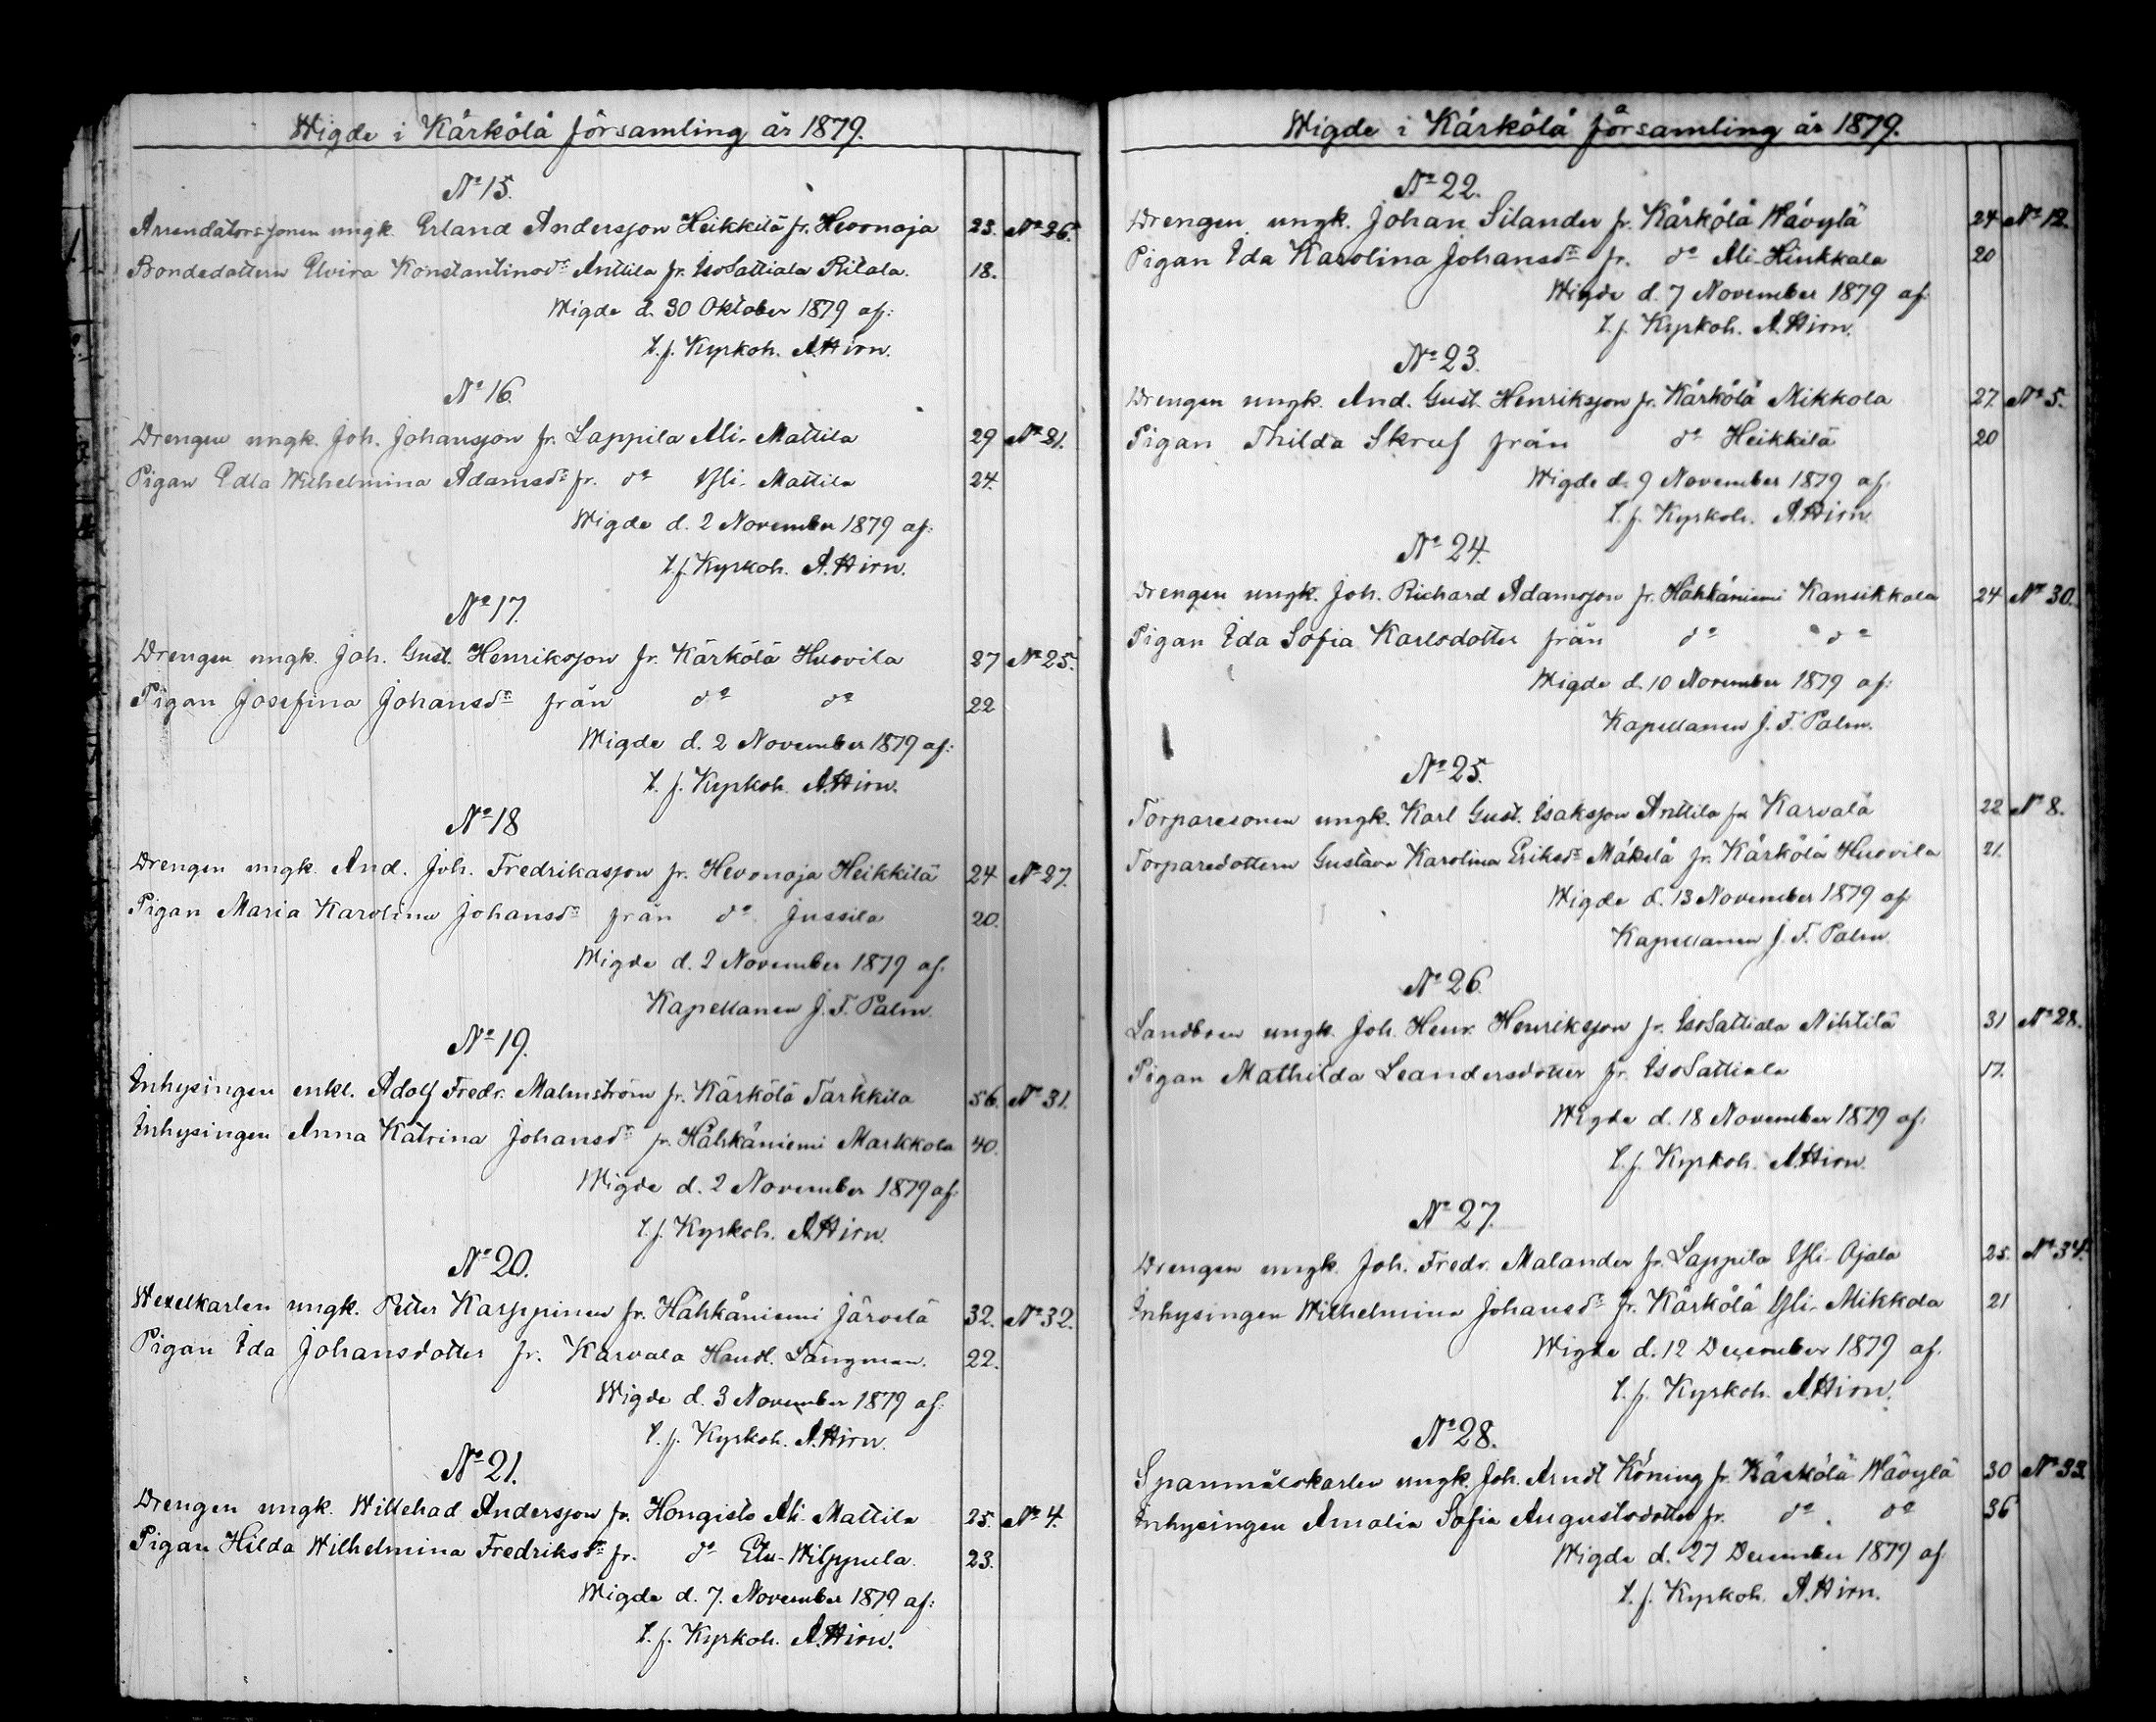 Wigde i Kärkölä församling år 1879.
No 15.
Arrendatorssonen ungk. Erland Andersson Heikkilä fr. Hevonoja 23. No 26.
Bondedottern Elvira Konstantinsdr Anttila fr. IsoSattiala Ritala. 18.
Wigde d. 30 Oktober 1879 af:
t.f. Kyrkoh. A. Hirn.
No 16.
Drengen ungk. Joh. Johansson fr. Lappila Ali-Mattila 29 No 21.
Pigan Edla Wilhelmina Adamsdr fr. do Yli-Mattila 24.
Wigde d. 2 November 1879 af:
t.f. Kyrkoh. A. Hirn.
No 17.
Drengen ungk. Joh. Gust. Henriksson fr. Kärkölä Huovila 27 No 25.
Pigan Josefina Johansdr från do do 22
Wigde d. 2 November 1879 af:
t.f. Kyrkoh. A. Hirn.
No 18
Drengen ungk. And. Joh. Fredriksson fr. Hevonoja Heikkilä 24 No 27.
Pigan Maria Karolina Johansdr från do Jussila 20.
Wigde d. 2 November 1879 af.
Kapellanen J. F. Palm.
No 19.
Inhysingen enkl. Adolf Fredr. Malmström fr. Kärkölä Tarkkila 56. No 31.
Inhysingen Anna Katrina Johansdr fr. Hähkäniemi Markkola 40.
Wigde d. 2 November 1879 af:
t.f. Kyrkoh. A. Hirn.
No 20.
Wexelkarlen ungk. Petter Karppinen fr. Hähkäniemi Järvelä 32. No 32.
Pigan Ida Johansdotter fr. Karvala Handl. Långman. 22.
Wigde d. 3 November 1879 af:
t.f. Kyrkoh. A. Hirn.
No 21.
Drengen ungk. Willehad Andersson fr. Hongisto Ali-Mattila 25. No 4.
Pigan Hilda Wilhelmina Fredriksdr fr. do Etu-Wilppula. 23.
Wigde d. 7. November 1879 af:
t.f. Kyrkoh. A. Hirn.
Wigde i Kärkölä församling år 1879.
No 22.
Drengen ungk. Johan Silander fr. Kärkölä Hävylä 24 No 12.
Pigan Ida Karolina Johansdr fr. do Ali-Hinkkala 20
Wigde d. 7 November 1879 af:
t.f. Kyrkoh. A. Hirn.
No 23.
Drengen ungk. And. Gust. Henriksson fr. Kärkölä Mikkola 27. No 5.
Pigan Thilda Skruf från do Heikkilä 20
Wigde d. 9 November 1879 af.
t.f. Kyrkoh. A. Hirn.
No 24.
Drengen ungk. Joh. Richard Adamsson fr. Hähkäniemi Kansikkala 24 No 30.
Pigan Ida Sofia Karlsdotter från do do
Wigde d. 10 November 1879 af:
Kapellanen J. F. Palm.
No 25.
Torparesonen ungk. Karl Gust. Isaksson Anttila fr. Karvala 22. No 8.
Torparedottern Gustava Karolina Eriksdr Mäkelä fr. Kärkölä Huovila 21.
Wigde d. 13 November 1879 af
Kapellanen J. F. Palm
No 26.
Landboen ungk. Joh. Henr. Henriksson fr. IsoSattiala Nihtilä 31 No 28.
Pigan Mathilda Leandersdotter fr. IsoSattiala 17.
Wigde d. 18 November 1879 af.
t.f. Kyrkoh. A. Hirn.
No 27.
Drengen ungk. Joh. Fredr. Malander fr. Lappila Yli-Ojala 25. No 34.
Inhysingen Wilhelmina Johansdr fr. Kärkölä Yli-Mikkola 21
Wigde d. 12 December 1879 af.
t.f. Kyrkoh. A. Hirn.
No 28.
Spanmålskarlen ungk. Joh. Arndt Köning fr. Kärkölä Hävylä 30 No 33.
Inhysingen Amalia Sofia Augustsdotter fr. do do 36
Wigde d. 27 December 1879 af
t.f. Kyrkoh. A. Hirn.